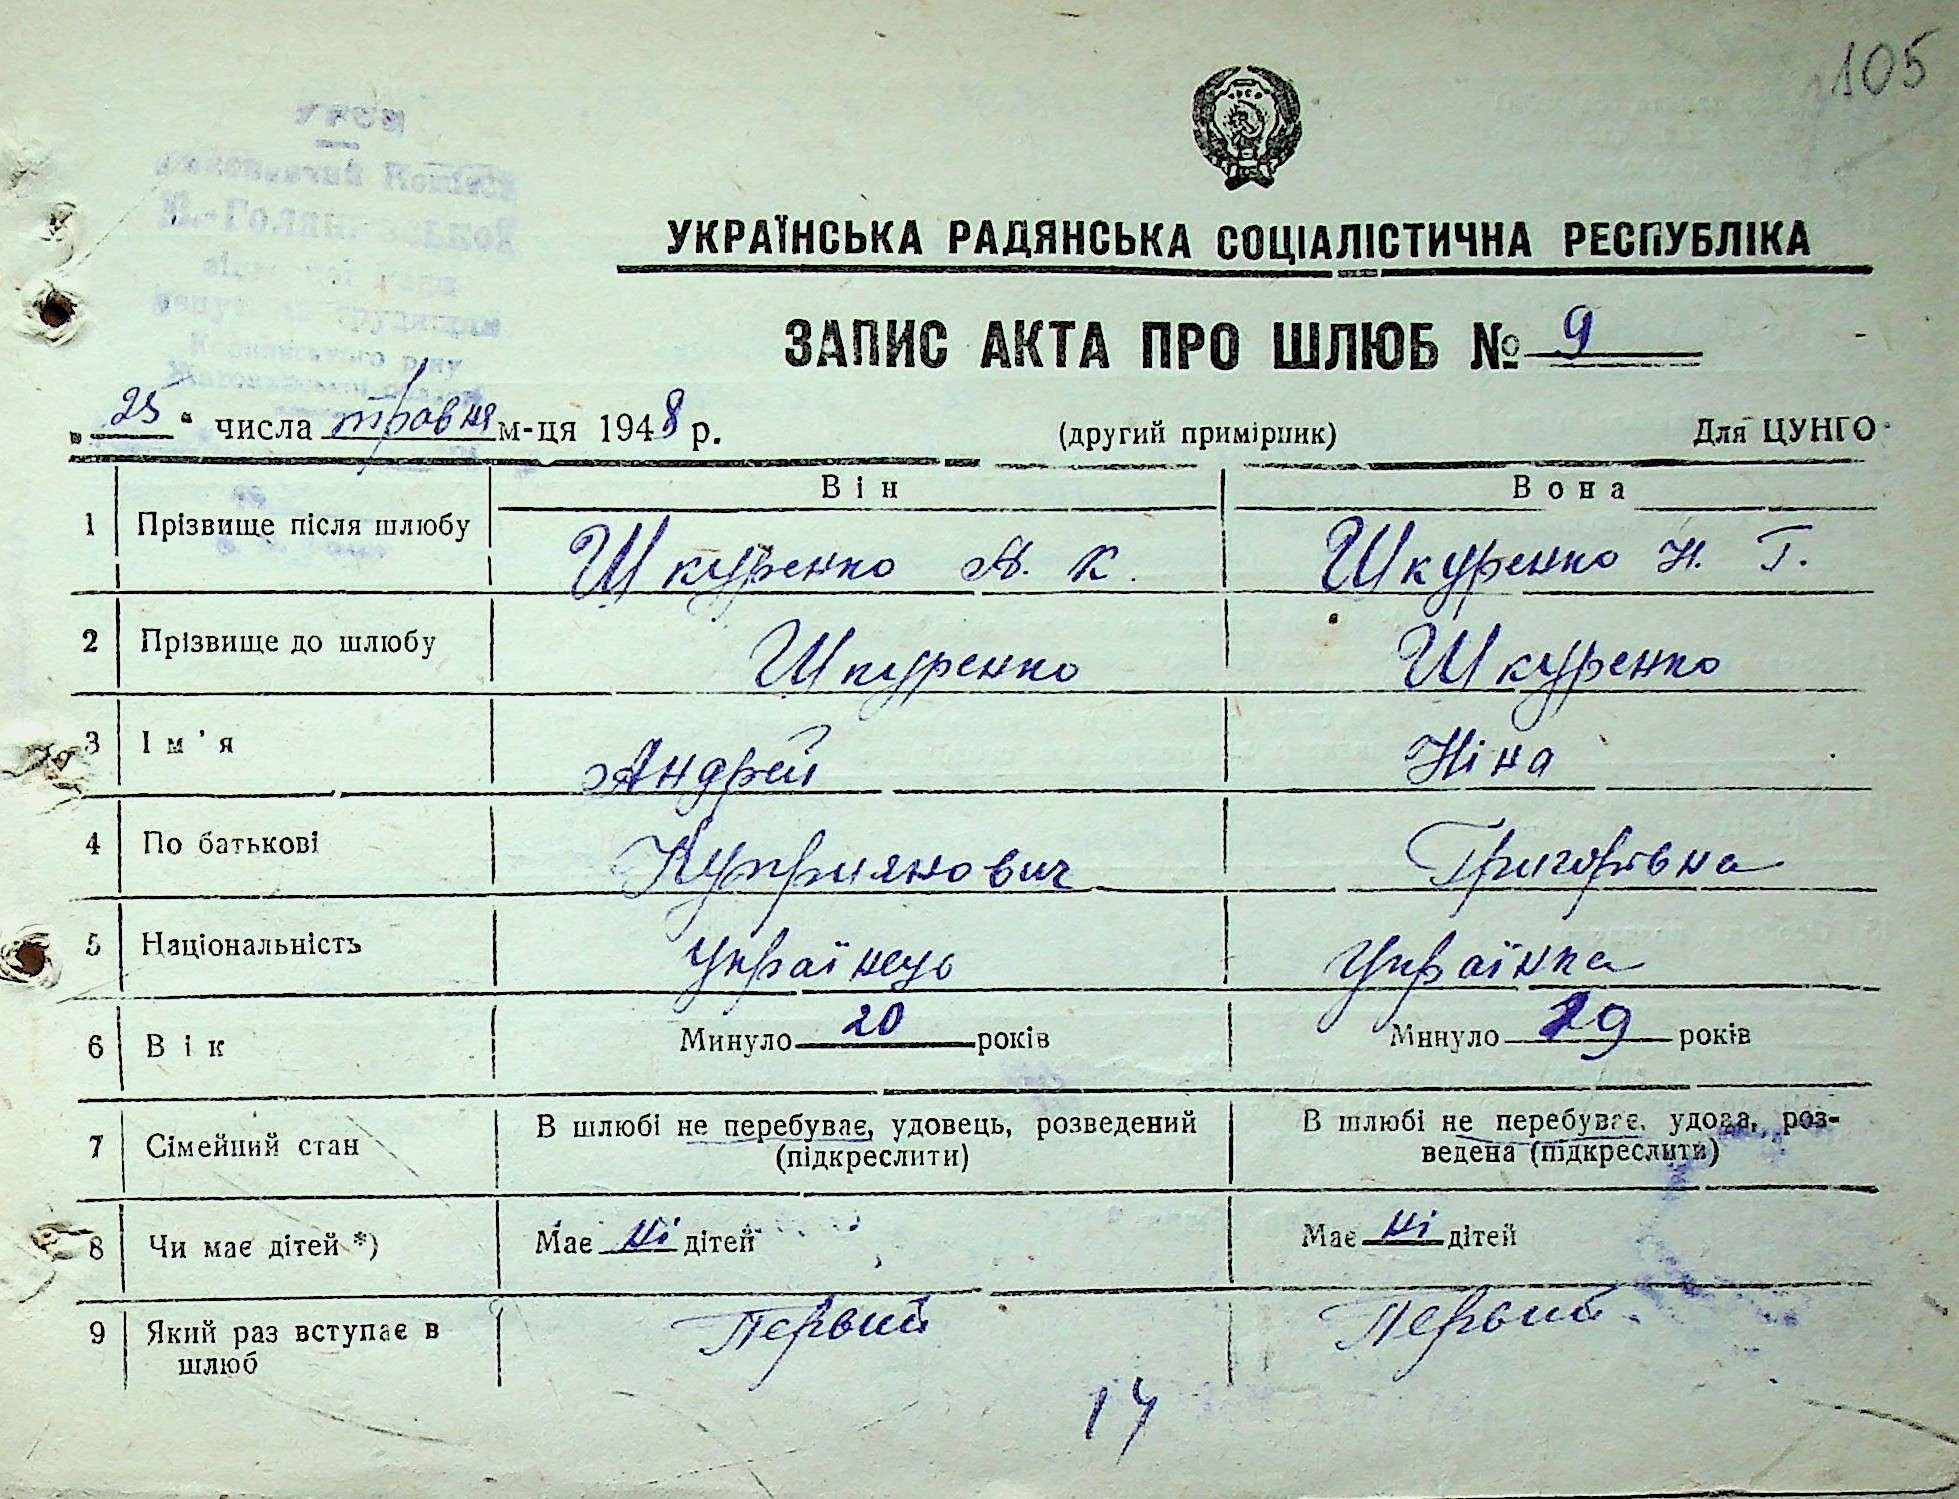 105
УРСР
УКРАЇНСЬКА РАДЯНСЬКА СОЦІАЛІСТИЧНА РЕСПУБЛІКА
ЗАПИС АКТА ПРО ШЛЮБ № 9
„25“ числа травня м-ця 1948 р. (другий примірник) Для ЦУНГО
Він Вона
1 Прізвище після шлюбу Шкуренко А. К. Шкуренко Н. Г.
2 Прізвище до шлюбу Шкуренко Шкуренко
3 Ім'я Андрей Ніна
4 По батькові Куприянович Григорівна
5 Національність Українець Українка
6 Вік Минуло 20 років Минуло 29 років
7 Сімейний стан В шлюбі не перебуває, удовець, розведений (підкреслити) В шлюбі не перебуває, удова, роз-
ведена (підкреслити)
8 Чи має дітей *) Має ні дітей Має ні дітей
9 Який раз вступає в шлюб Первий Первий
14